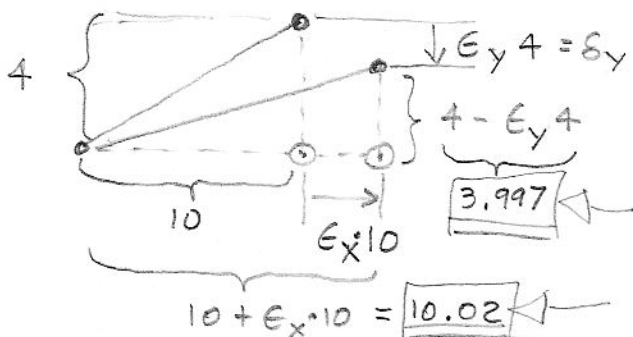 4
ϵ_y 4 = δ_y
4 - ϵ_y 4
3.997
10
ϵ_x·10
10 + ϵ_x·10 = 10.02